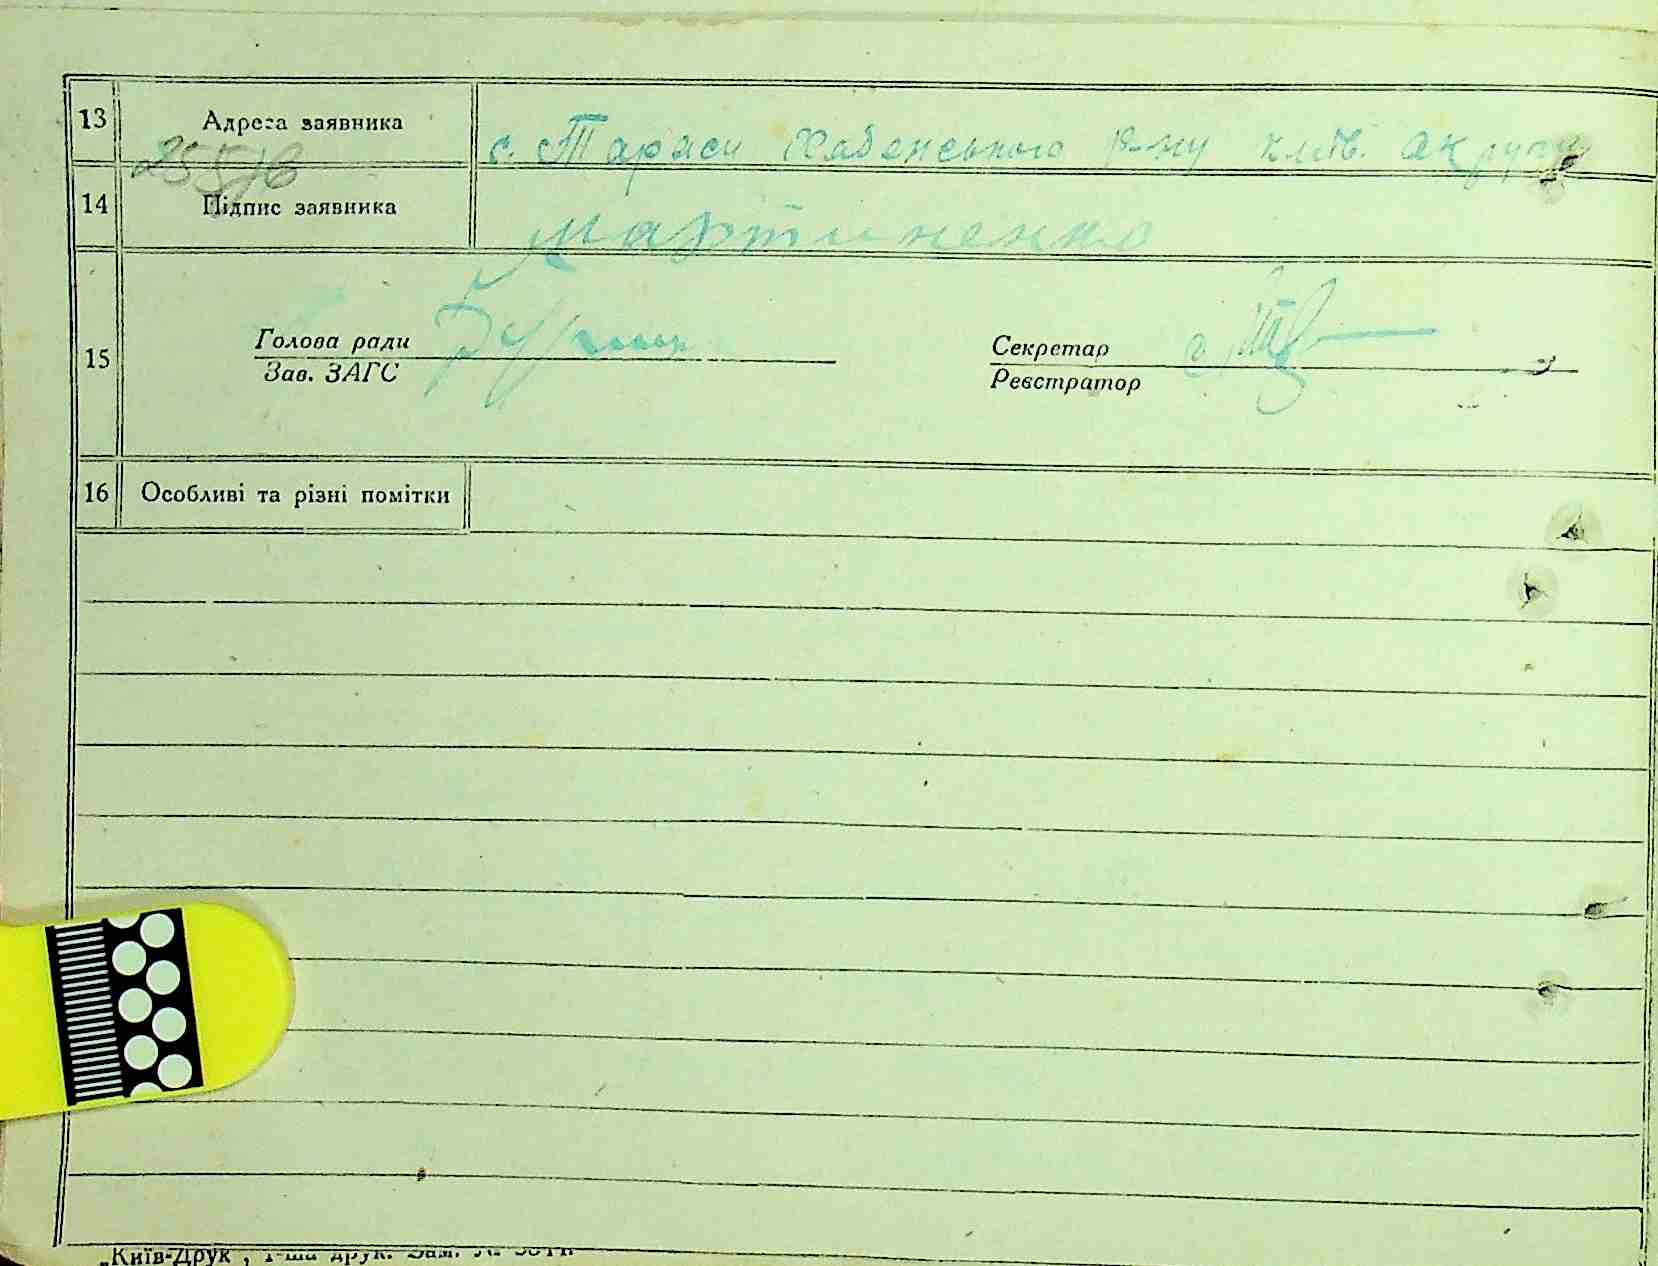 13 Адреса заявника с. Тараси Хабенського р-ну київ. округи
14 Підпис заявника Мартиненко
Голова ради Секретар
15
Зав. ЗАГС Реєстратор
16 Особливі та різні помітки
„Київ-Друк", 1-ша друк. Зам. №